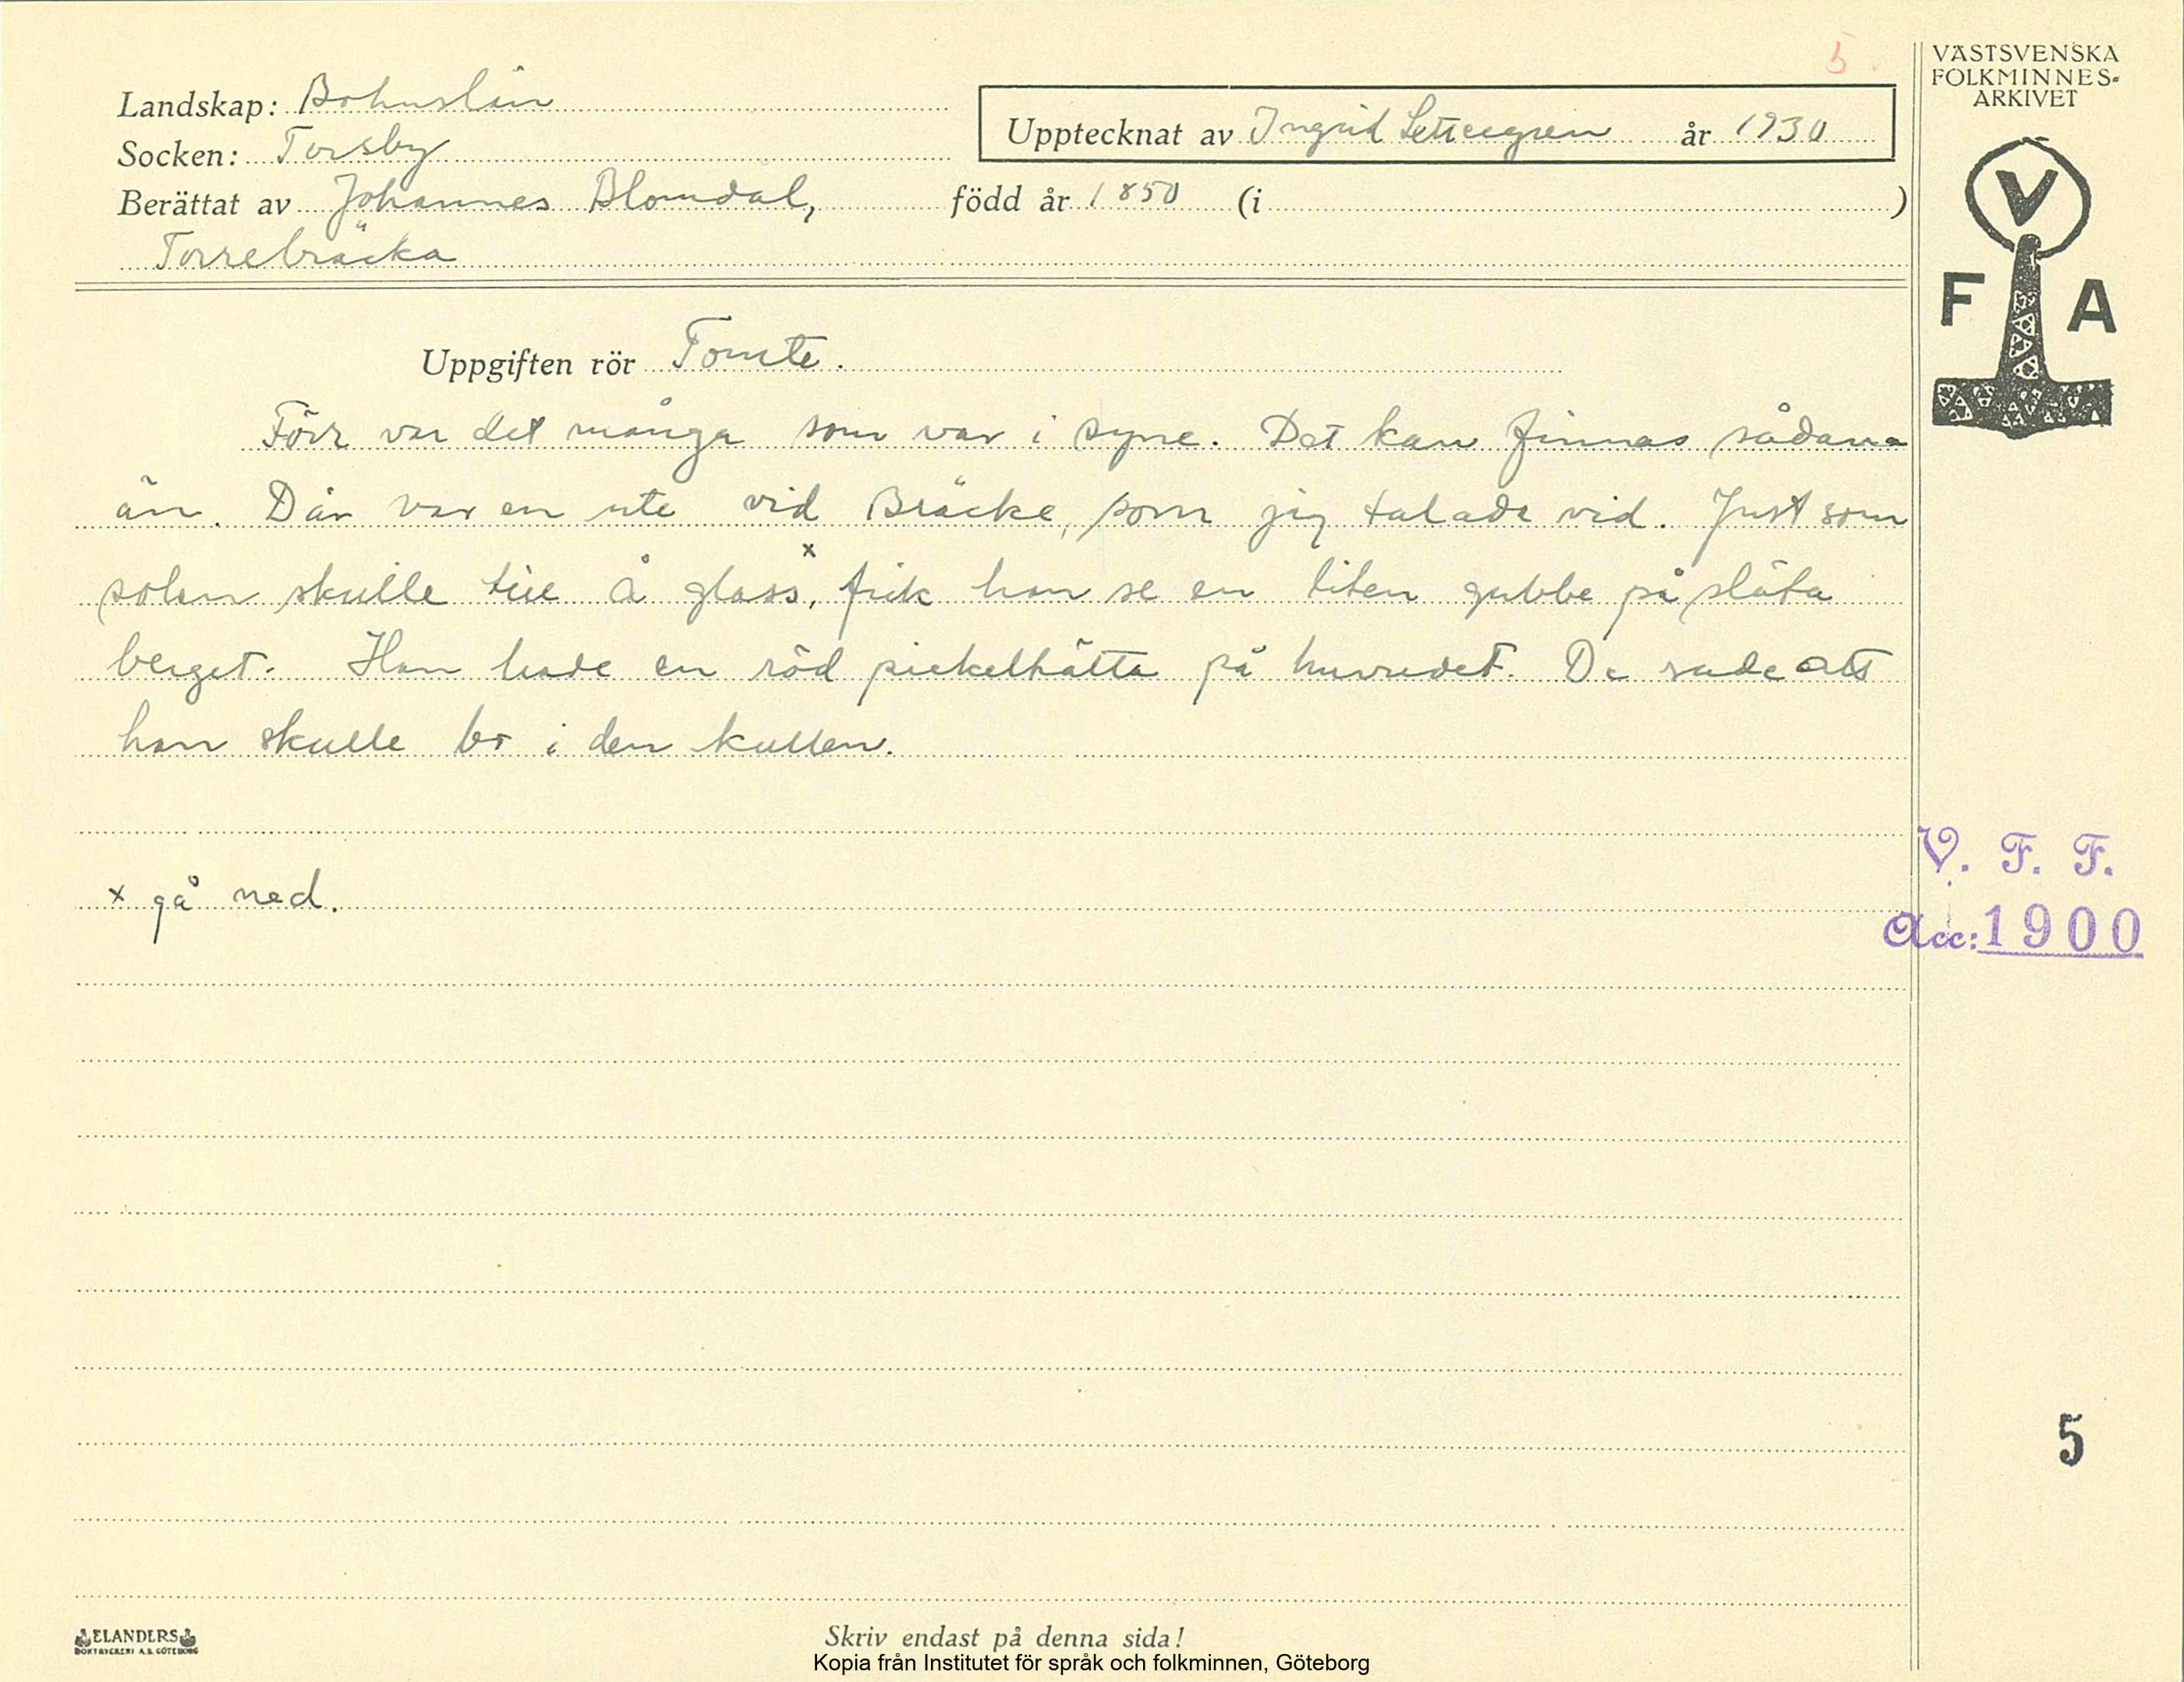 5.
VÄSTSVENSKA
FOLKMINNES-
ARKIVET
Landskap: Bohuslän
Upptecknat av Ingrid år 1930
Socken: Torsby
Berättat av Johannes Blomdal, född år 1850 (i )
Torrebräcka
V
F A
Uppgiften rör Tomte.
Förr var det många som var i syne. Det kan finnas sådana
än. Där var en ute vid Bräcke, som jag talade vid. Just som
solen skulle till å glass,x fick han se en liten gubbe på släta
berget. Han hade en röd pickelhätta på huvudet. De sade att
han skulle bo i den kullen.
x gå ned.
V. F. F.
Acc: 1900
5
ELANDERS
BOKTRYCKERI A.B. GÖTEBORG
Skriv endast på denna sida!
Kopia från Institutet för språk och folkminnen, Göteborg